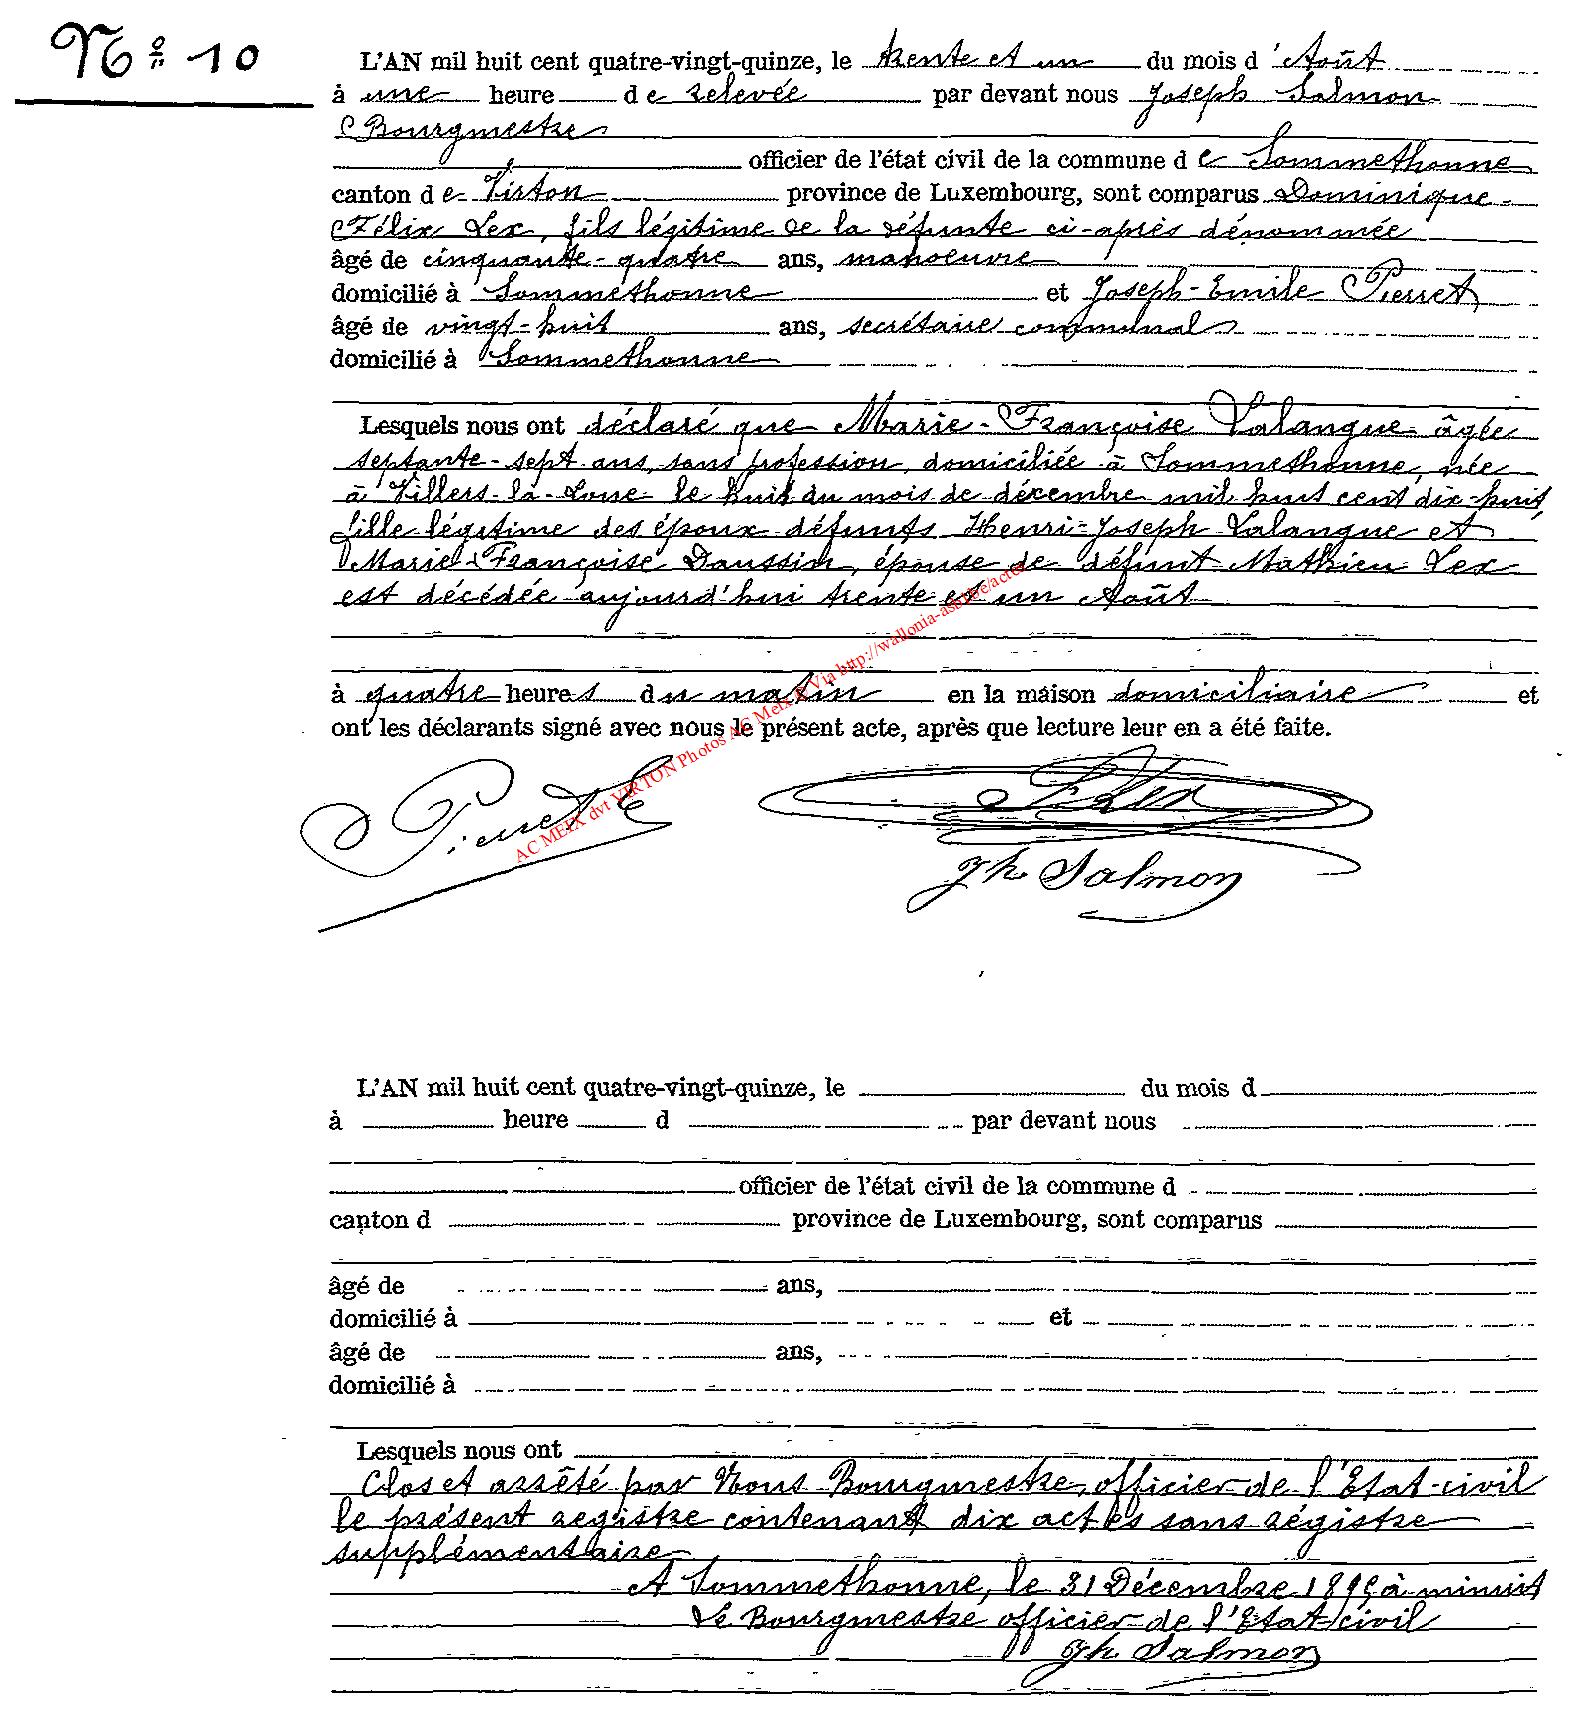 No 10
L'AN mil huit cent quatre-vingt-quinze, le trente et un du mois d'Août
à une heure de relevée par devant nous Joseph Salmon
Bourgmestre
officier de l'état civil de la commune de Sommethonne
canton de Virton province de Luxembourg, sont comparus Dominique
Félix Lex, fils légitime de la défunte ci-après dénommée
âgé de cinquante-quatre ans, manoeuvre
domicilié à Sommethonne et Joseph-Emile Pierret
âgé de vingt-huit ans, secrétaire communal
domicilié à Sommethonne
Lesquels nous ont déclaré que Marie-Françoise Lalangue âgée
septante-sept ans, sans profession, domiciliée à Sommethonne, née
à Villers-la-Loue le huit du mois de décembre mil huit cent dix-huit,
fille légitime des époux défunts Henri-Joseph Lalangue et
Marie-Françoise Daussin, épouse de défunt Mathieu Lex
est décédée aujourd'hui trente et un Août
à quatre heures du matin en la maison domiciliaire et
ont les déclarants signé avec nous le présent acte, après que lecture leur en a été faite.
AC MEIX dvt VIRTON Photos AC Meix Via http://wallonia-asbl.be/actes
Pierret E
F. Lex
Jh Salmon
L'AN mil huit cent quatre-vingt-quinze, le du mois d
à heure d par devant nous
officier de l'état civil de la commune d
canton d province de Luxembourg, sont comparus
âgé de ans,
domicilié à et
âgé de ans,
domicilié à
Lesquels nous ont
Clos et arrêté par Nous Bourgmestre, officier de l'Etat-civil
le présent registre contenant dix actes sans régistre
supplémentaire
A Sommethonne, le 31 Décembre 1895 à minuit
Le Bourgmestre officier de l'Etat-civil
Jh Salmon